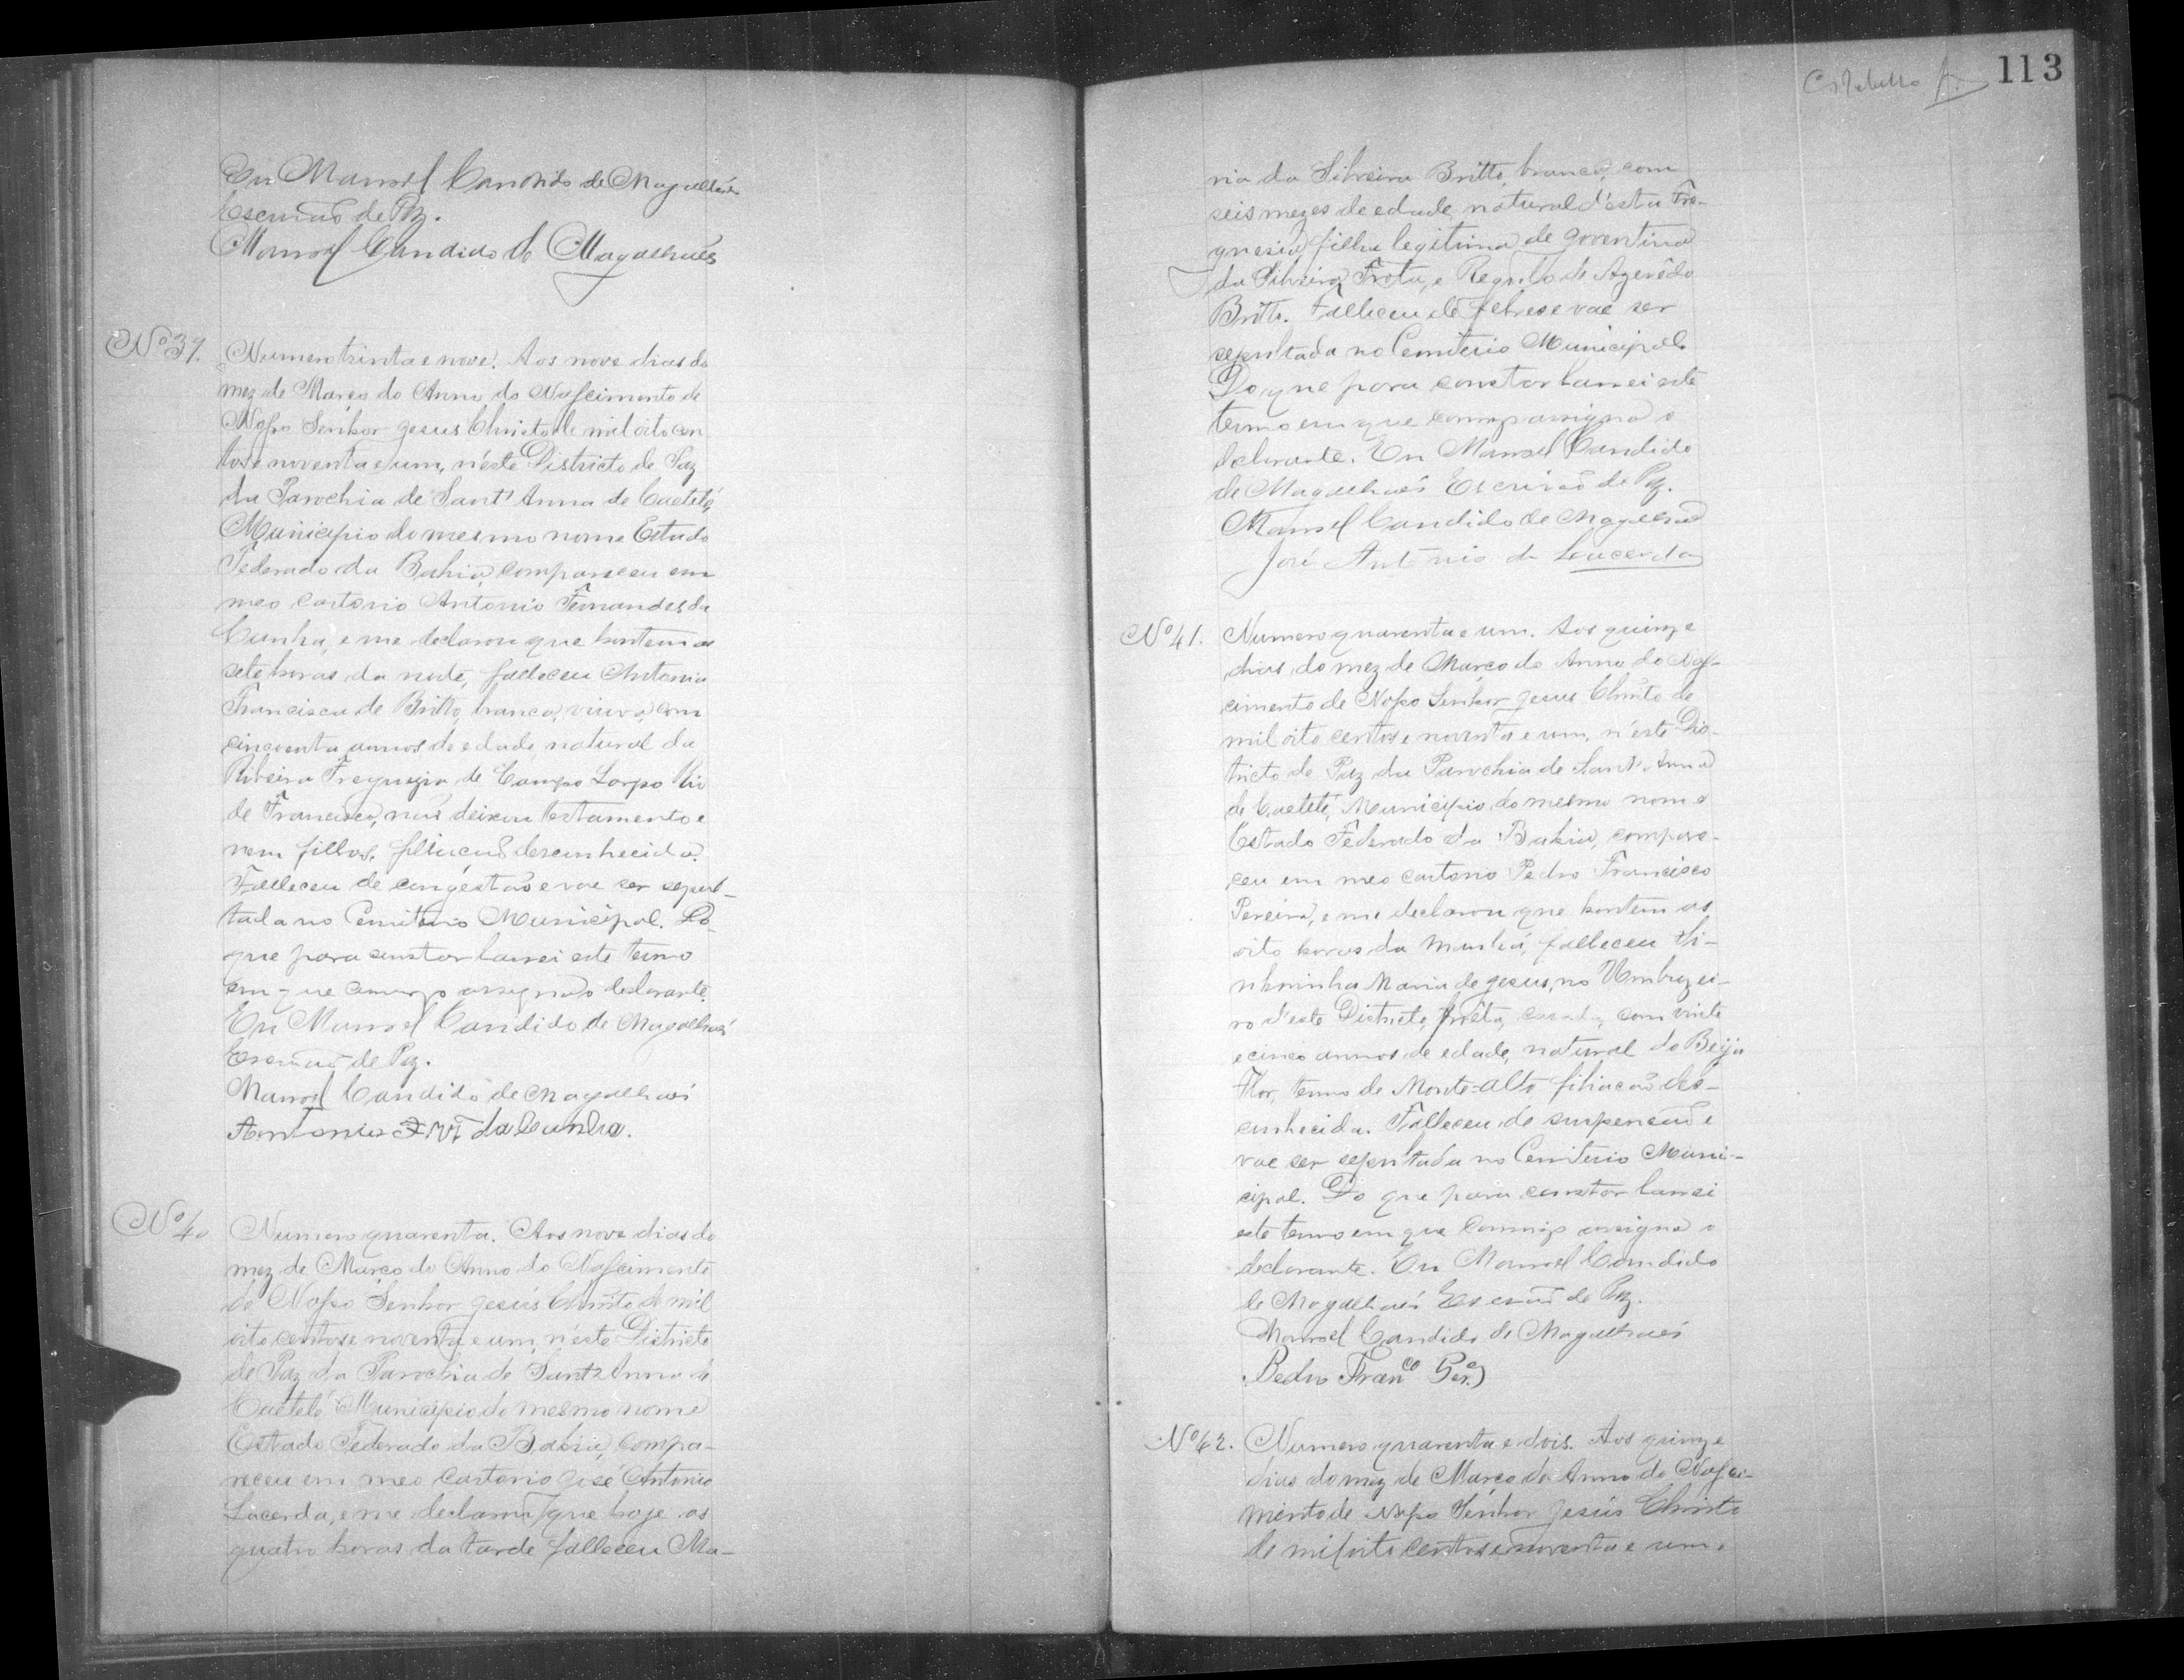 Eu Manoel Candido de Magalhães
Escrivão de Paz.
Manoel Candido de Magalhães
Nº 39.
Numero trinta e nove. Aos nove dias do
mez de Março do Anno do Nascimento de
Nosso Senhor Jesus Christo de mil oito cen
tos e noventa e um, n'este Districto de Paz
da Parochia de Sant'Anna de Caeteté,
Municipio do mesmo nome Estado
Federado da Bahia, compareceu em
meo cartorio Antonio Fernandes da
Cunha, e me declarou que hontem as
sete horas da noite, falleceu Antonia
Francisca de Britto, branca, viuva, com
cincoenta annos de edade, natural da
Ribeira Freguezia de Campo Largo Rio
de Francisco, não deixou testamento e
nem filhos, filiação desconhecida.
Falleceu de congestão e vae ser sepul-
tada no Cemiterio Municipal. Do
que para constar lavrei este termo
em que comigo assigna o declarante.
Eu Manoel Candido de Magalhães
Escrivão de Paz.
Manoel Candido de Magalhães
Antonio da Cunha.
Nº 40
Numero quarenta. Aos nove dias do
mez de Março do Anno do Nascimento
de Nosso Senhor Jesus Christo de mil
oito centos e noventa e um, n'este Districto
de Paz da Parochia de Sant'Anna de
Caeteté Municipio do mesmo nome
Estado Federado da Bahia, compa-
receu em meo cartorio José Antonio
Lacerda, e me declarou que hoje as
quatro horas da tarde falleceu Ma-
113
ria da Silveira Britto, branca, com
seis mezes de edade, natural d'esta Fre-
guesia, filha legitima de Joventina
da Silveira Frota, e Regulo de Azevêdo
Britto. Falleceu de febres e vae ser
sepultada no Cemiterio Municipal.
Do que para constar lavrei este
termo em que comigo assigna o
declarante. Eu Manoel Candido
de Magalhães Escrivão de Paz.
Manoel Candido de Magalhães
José Antonio de Lacerda
Nº 41.
Numero quarenta e um. Aos quinze
dias do mez de Março do Anno do Nas-
cimento de Nosso Senhor Jesus Christo de
mil oito centos e noventa e um, n'este Dis-
tricto de Paz da Parochia de Sant'Anna
de Caeteté, Municipio do mesmo nome
Estado Federado da Bahia, compare-
ceu em meo cartorio Pedro Francisco
Pereira, e me declarou que hontem as
oito horas da manhã, falleceu Si-
nhorinha Maria de Jesus, no Umbuzei-
ro d'este Districto, prêta, casada, com vinte
e cinco annos de edade, natural do Beija
Flor, termo de Monte-alto filiação des-
conhecida. Falleceu de suspensão e
vae ser sepultada no Cemiterio Muni-
cipal. Do que para constar lavrei
este termo em que comigo assigna o
declarante. Eu Manoel Candido
de Magalhães Escrivão de Paz.
Manoel Candido de Magalhães
Pedro Franco Pera
Nº 42.
Numero quarenta e dois. Aos quinze
dias do mez de Março do Anno do Nasci-
mento de Nosso Senhor Jesus Christo
de mil oito centos e noventa e um,